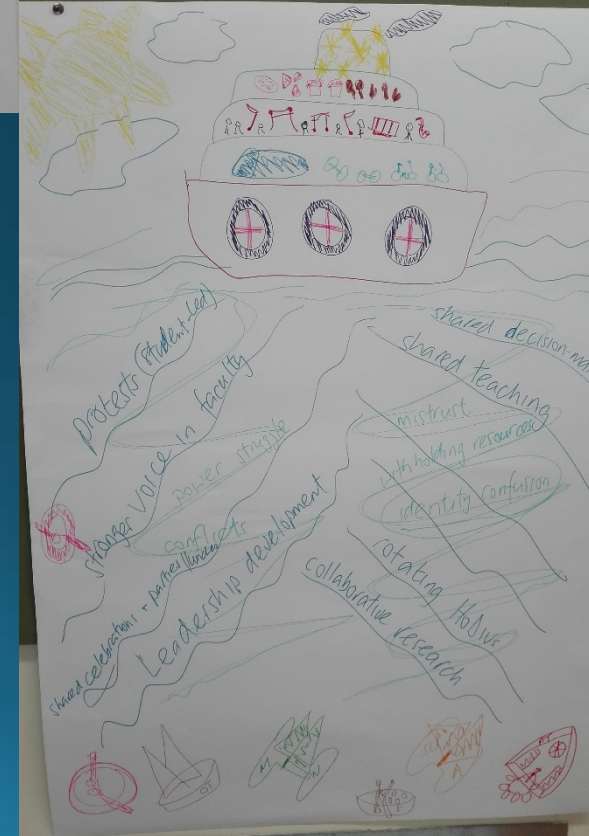 protests (student-led)
stronger voice in faculty
power struggle
conflicts
shared celebrations + parties
Leadership development
shared decision-ma
shared teaching
mistrust
withholding resources
identity confusion
rotating HoDivs
collaborative research
OT
M
N
A